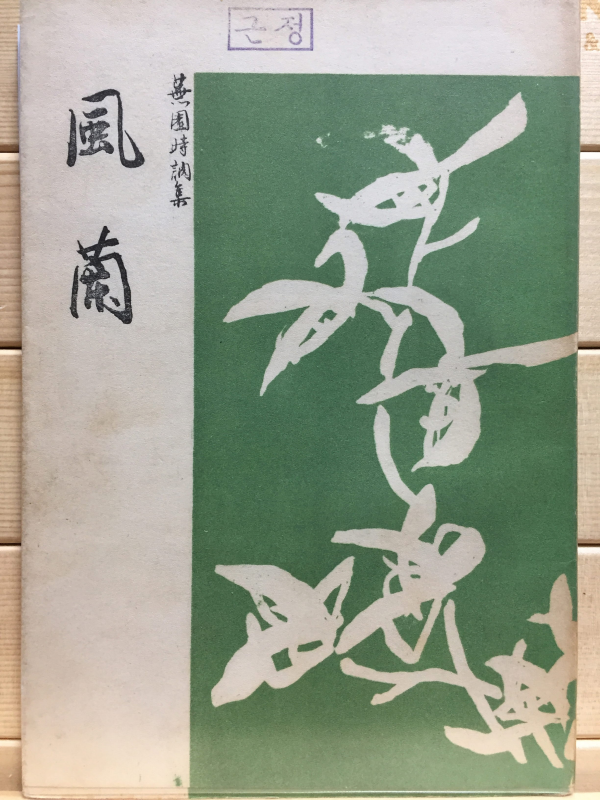 근정
蕪園時調集
風蘭